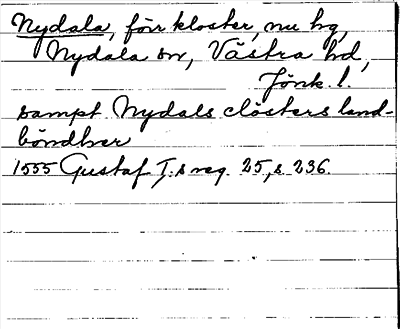 Nydala, förr kloster, nu hg,
Nydala sn, Västra hd,
Jönk. l.
sampt Nydals clösters land-
böndher
1555 Gustaf I:s reg. 25, s. 236.